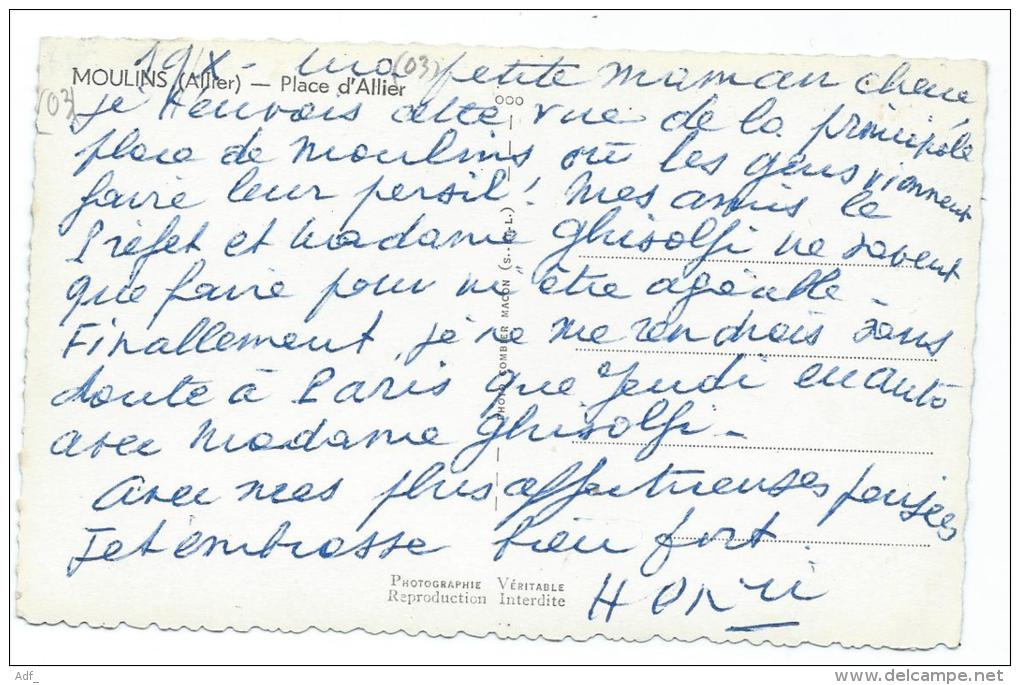 19/X - Ma petite maman cherie
(03)
MOULINS (Allier) — Place d'Allier
(03)
ooo
je t'envois cette vue de la principale
place de Moulins où les gens viennent
faire leur persil! Mes amis le
Préfet et Madame Ghisolfi ne savent
que faire pour m'être agréable -
Finallement, je ne me rendrais sans
doute à Paris que Jeudi en auto
avec Madame Ghisolfi -
Avec mes plus affectueuses pensées
Je t'embrasse bien fort.
Henri
PHOTO COMBIER MACON (S.-&-L.)
PHOTOGRAPHIE VÉRITABLE
Reproduction Interdite
Adf_
delcampe.net